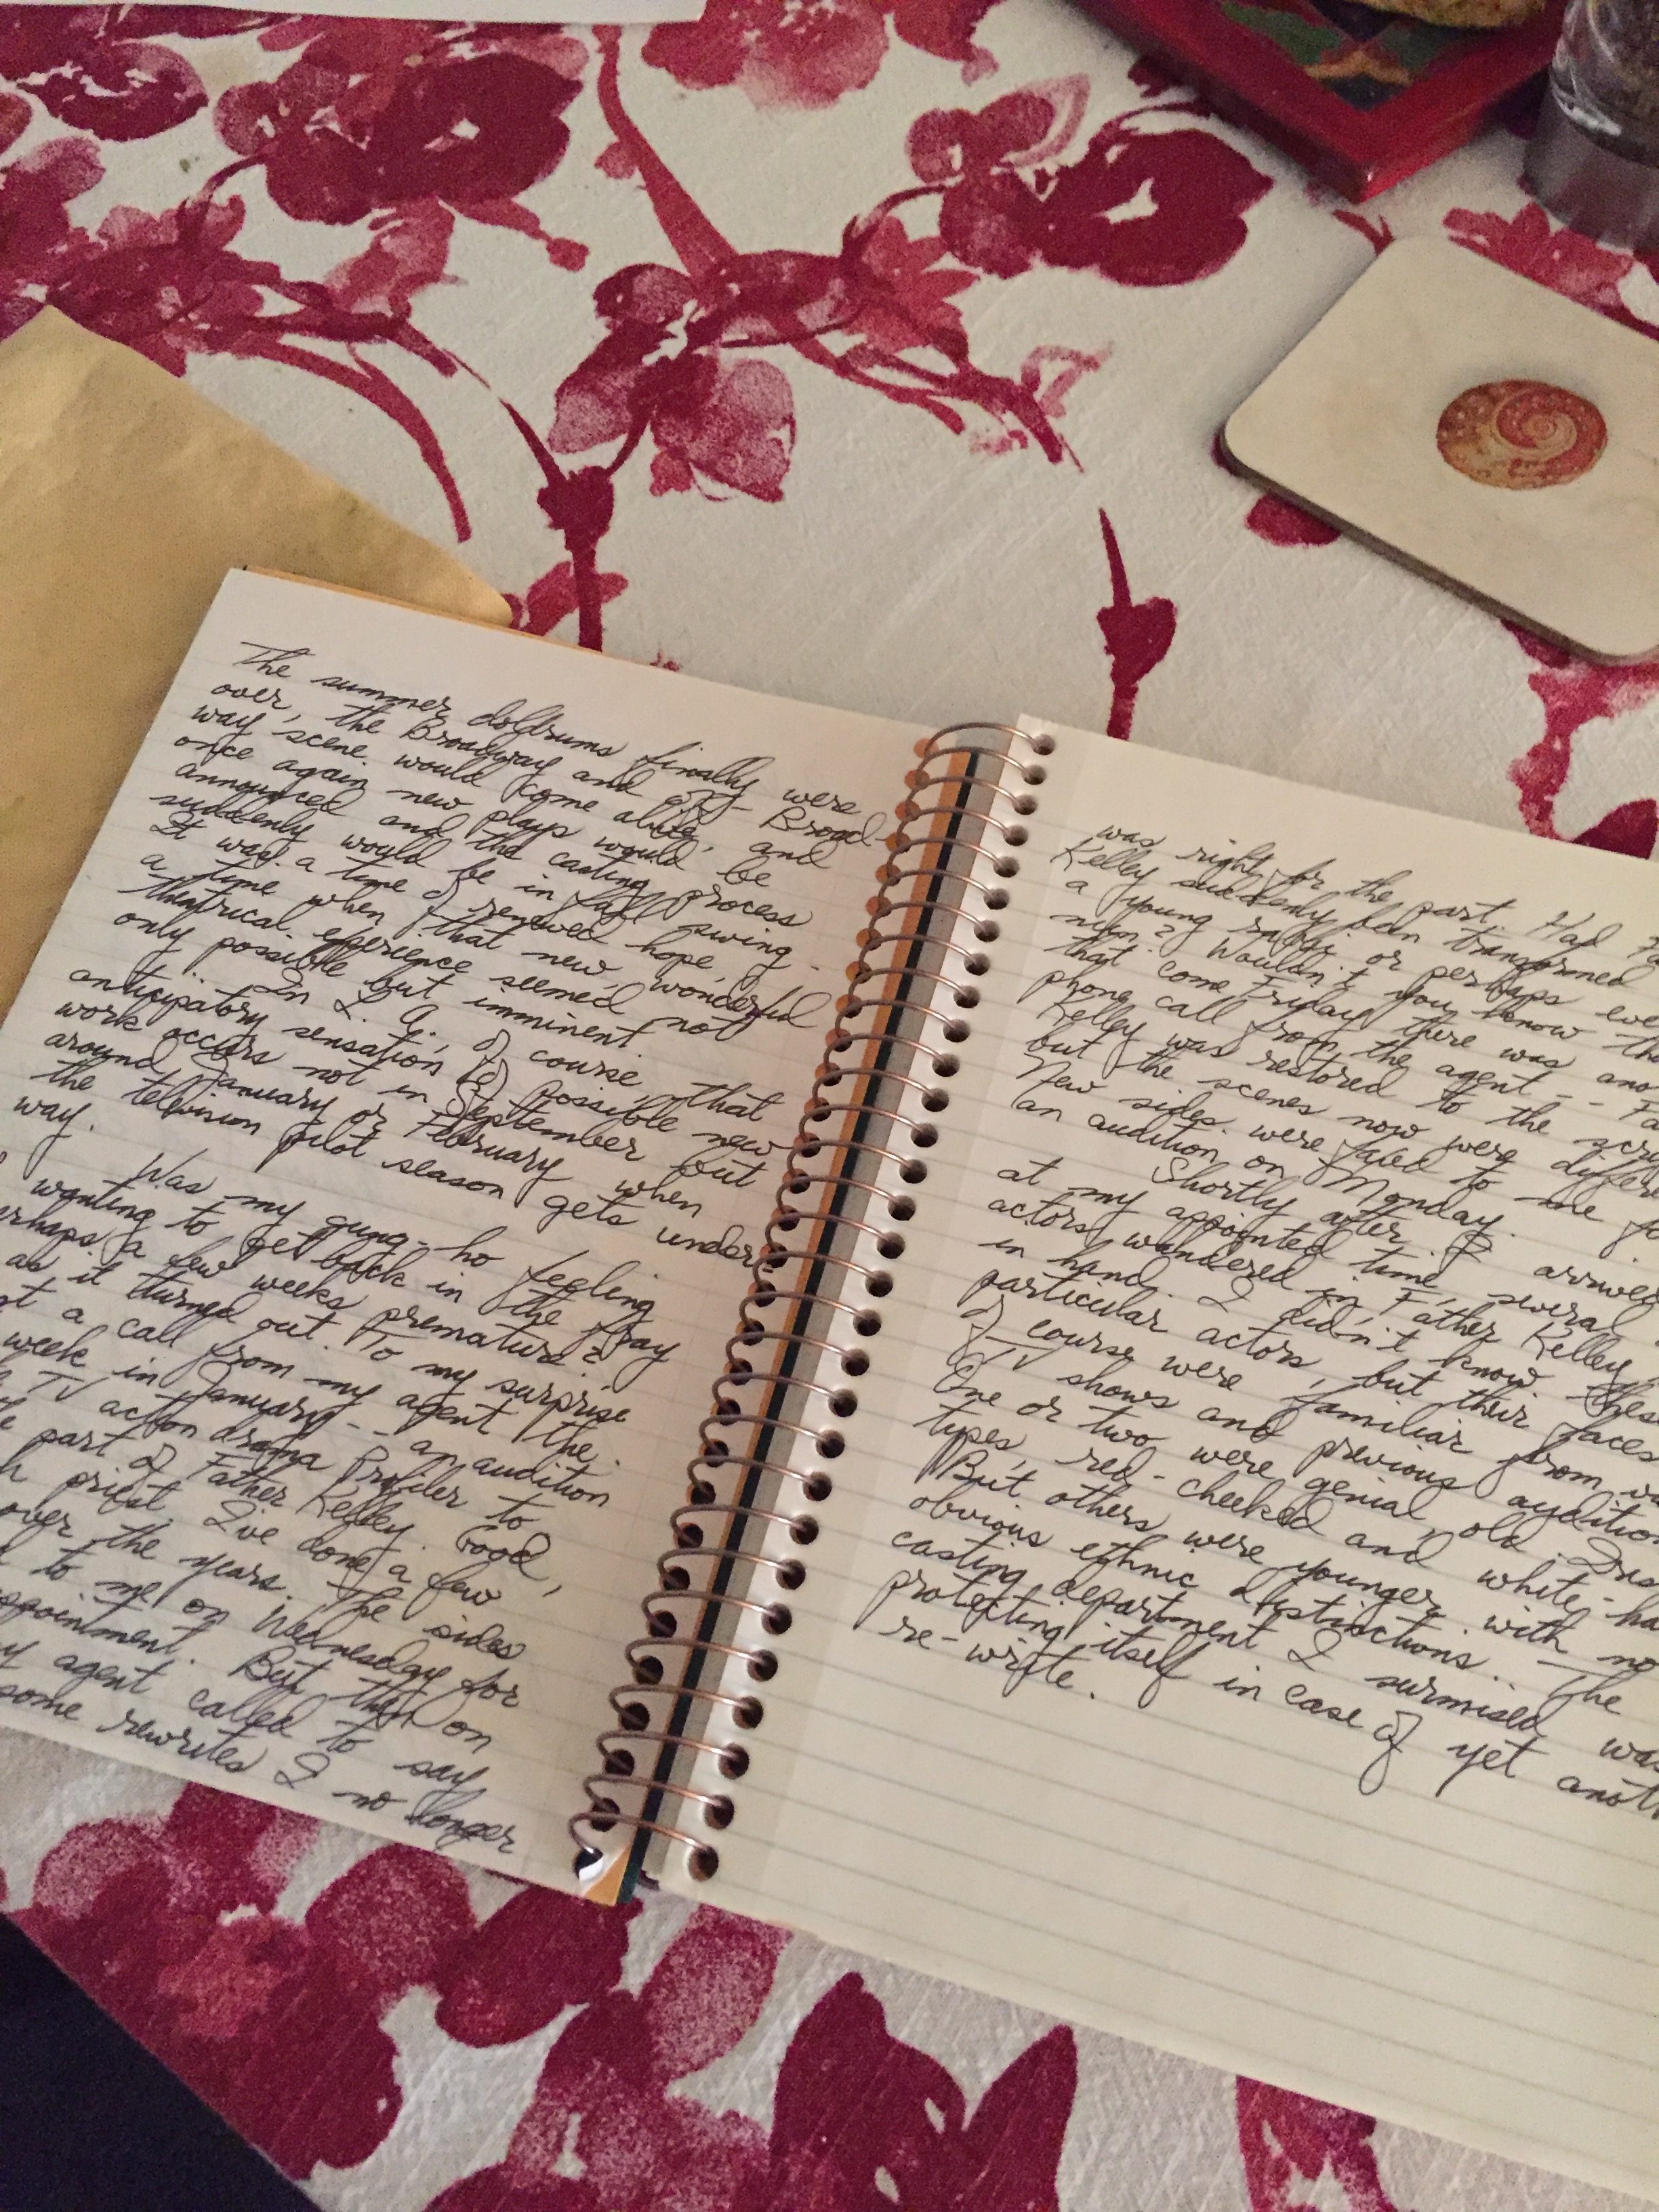 The summer doldrums finally were
over, the Broadway and off-Broad-
way scene would come alive, and
once again new plays would be
announced and the casting process
suddenly would be in full swing.
It was a time of renewed hope,
a time when that new, wonderful
theatrical experience seemed not
only possible but imminent
In L.A., of course, that
anticipatory sensation of possible new
work occurs not in September but
around January or February when
the television pilot season gets under-
way.
Was my gung-ho feeling
wanting to get back in the fray
perhaps a few weeks premature?
as it turned out. To my surprise
a call from my agent the
week in January -- an audition
TV action drama Profiler to
part of Father Kelley. Good,
priest. I've done a few
over the years. The sides
to me on Wednesday for
appointment. But then on
agent called to say
some rewrites I no longer
was right for the part. Had
Kelley suddenly been transformed
a young rabbi or perhaps even
nun? Wouldn't you know
that come Friday there was
phone call from the agent --
Kelley was restored to the
but the scenes now were
New sides were faxed to me
an audition on Monday.
Shortly after I arrived
at my appointed time, several
actors wandered in, Father Kelley
in hand. I didn't know these
particular actors, but their faces
of course were familiar from
TV shows and previous
One or two were genial old
types, red-cheeked and
But others were younger with no
obvious ethnic distinctions. The
casting department I surmised was
protecting itself in case of yet
re-write.